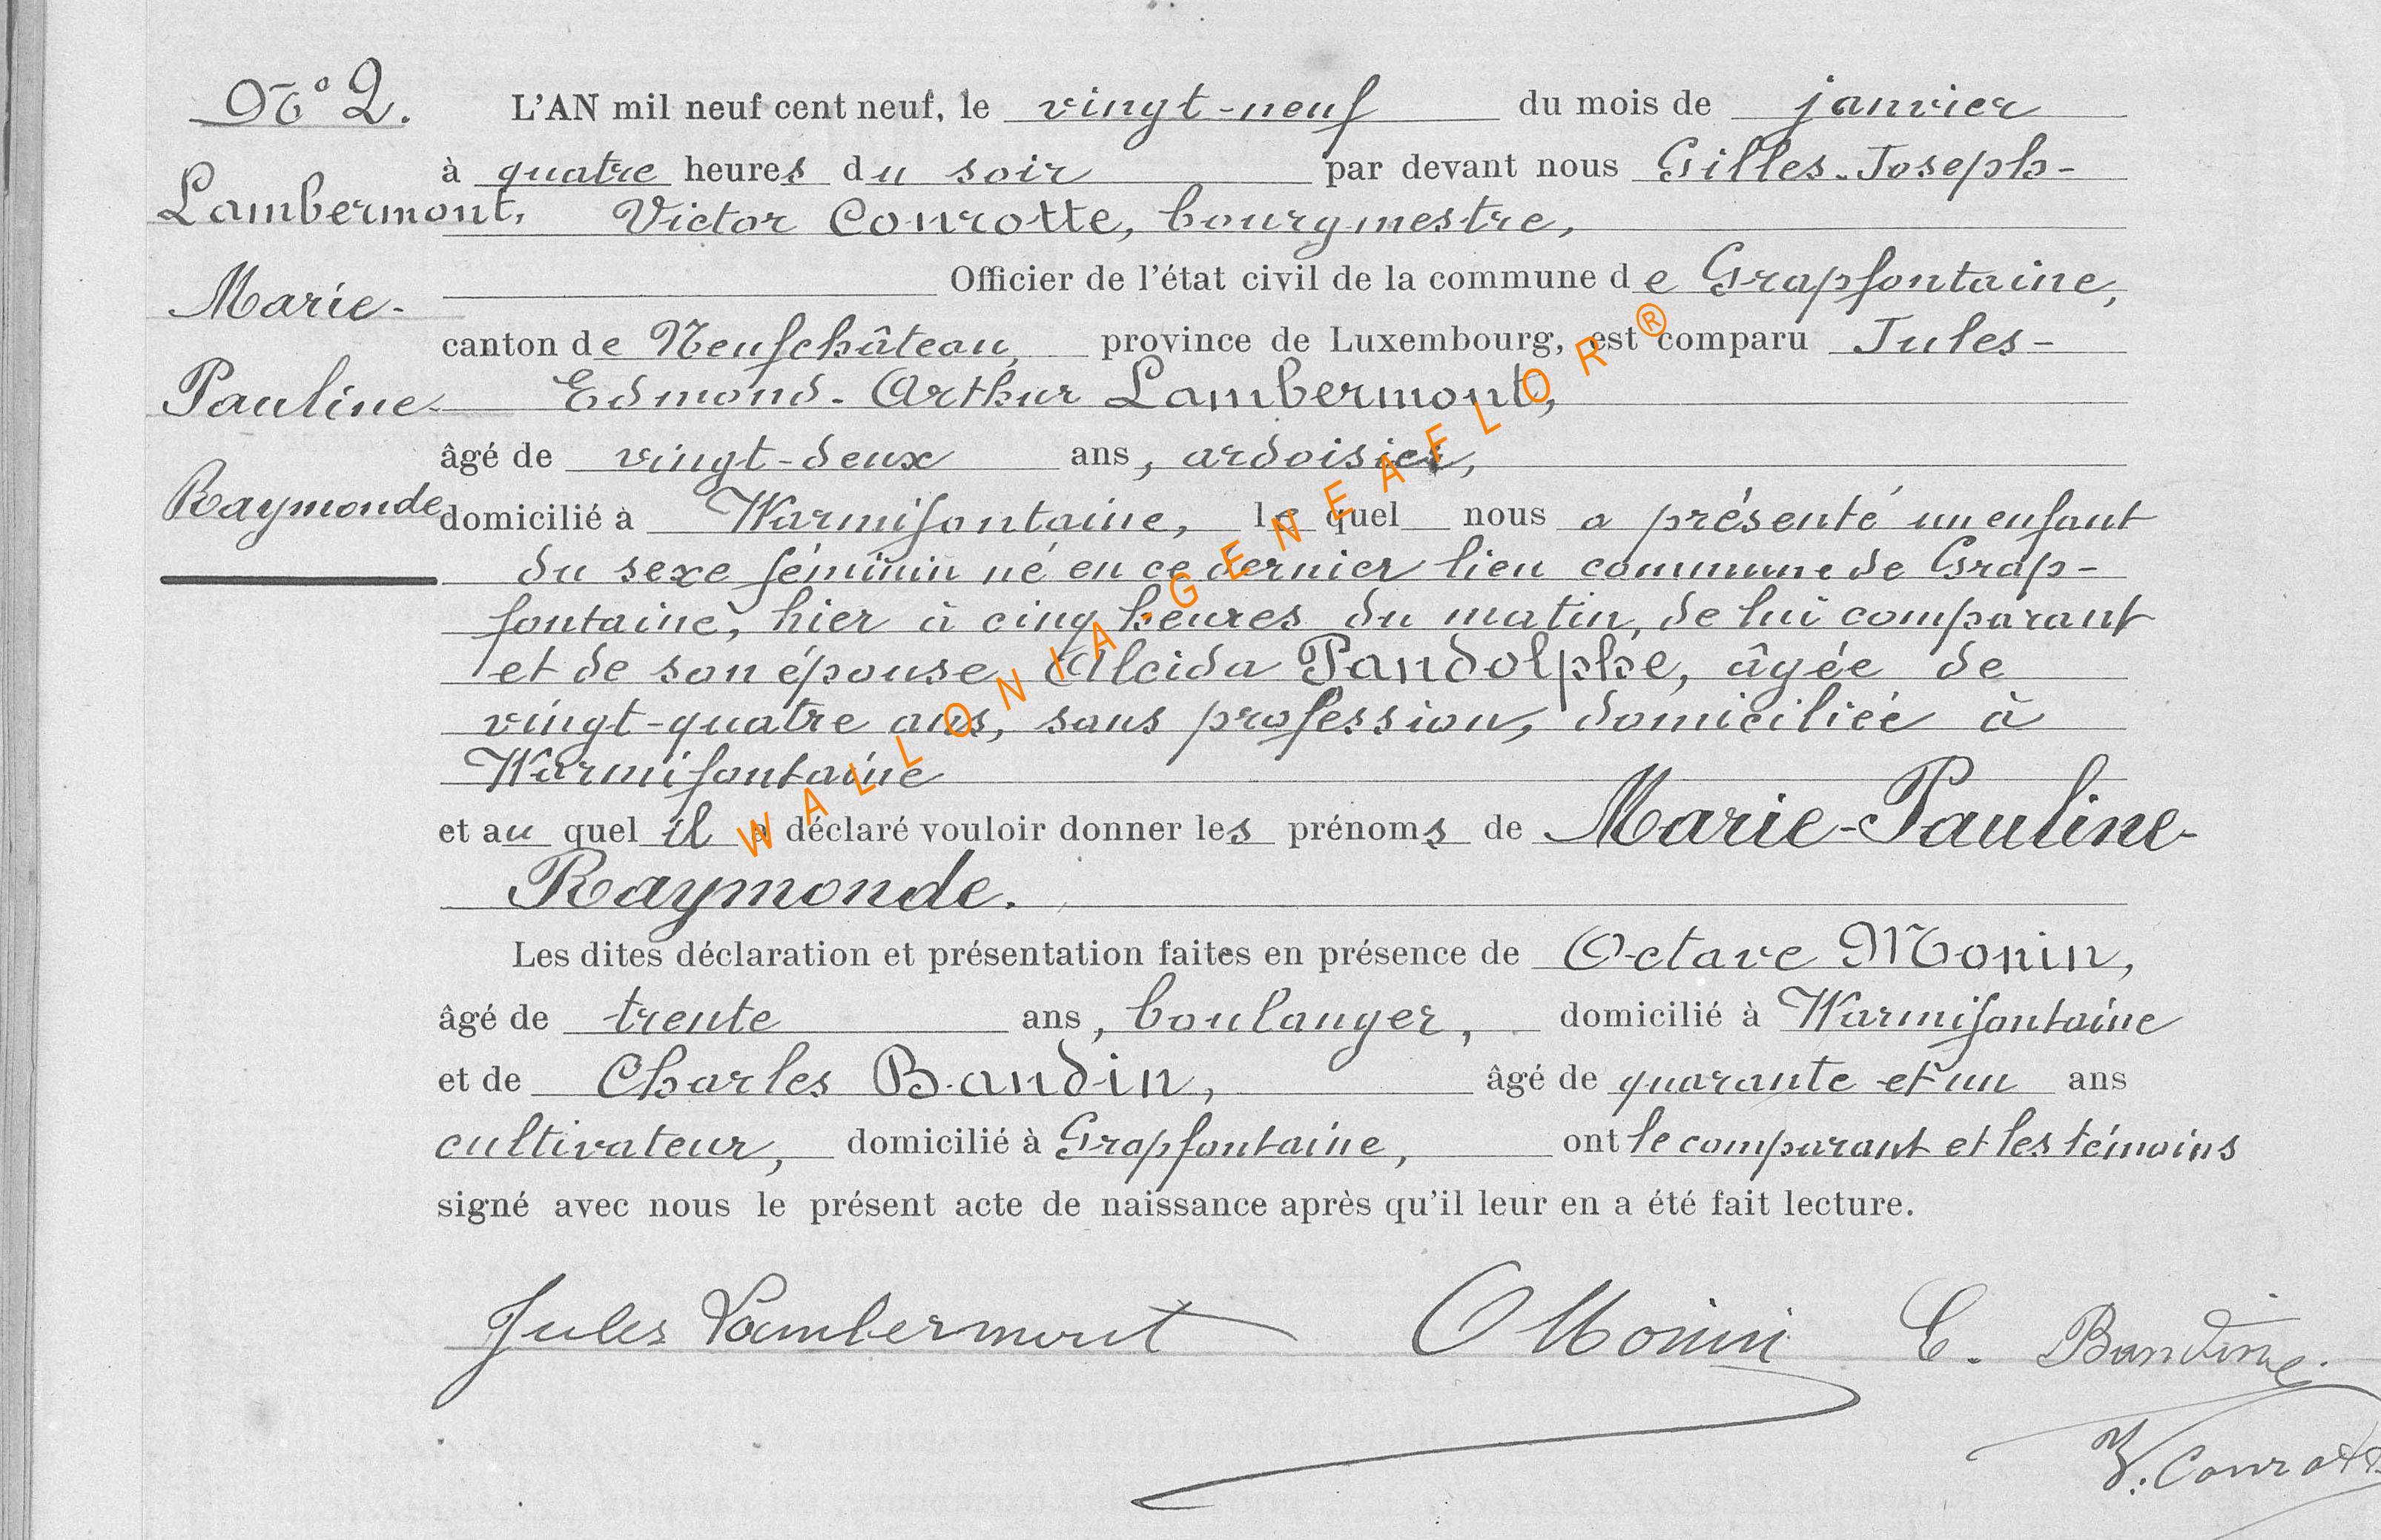 N° 2.
Lambermont,
Marie-
Pauline-
Raymonde
L'AN mil neuf cent neuf, le vingt-neuf du mois de janvier
à quatre heures du soir par devant nous Gilles-Joseph-
Victor Conrotte, bourgmestre,
Officier de l'état civil de la commune de Grapfontaine,
canton de Neufchâteau, province de Luxembourg, est comparu Jules-
Edmond-Arthur Lambermont,
âgé de vingt-deux ans, ardoisier,
domicilié à Warmifontaine, lequel nous a présenté un enfant
du sexe féminin né en ce dernier lieu commune de Grap-
fontaine, hier à cinq heures du matin, de lui comparant
et de son épouse Alcida Pandolphe, âgée de
vingt-quatre ans, sans profession, domiciliée à
Warmifontaine
et auquel il a déclaré vouloir donner les prénoms de Marie-Pauline-
Raymonde.
Les dites déclaration et présentation faites en présence de Octave Monin,
âgé de trente ans, boulanger, domicilié à Warmifontaine
et de Charles Bandin, âgé de quarante et un ans
cultivateur, domicilié à Grapfontaine, ont le comparant et les témoins
signé avec nous le présent acte de naissance après qu'il leur en a été fait lecture.
Jules Lambermont O Monin C. Bandin
V. Conrotte
WALLONIA-GENEAFLOR®